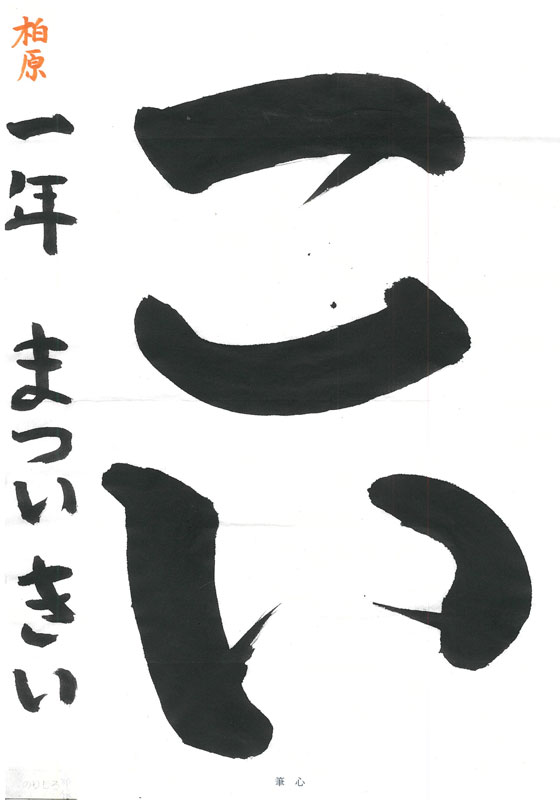 こい
柏原
一年 まつい きい
筆心